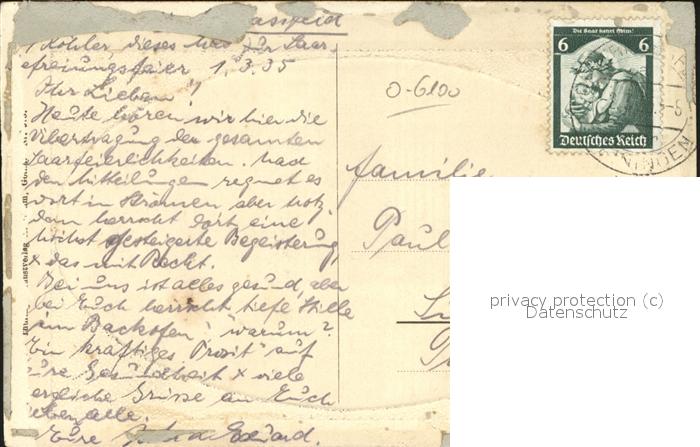 Köhler, dieses
1.3.35
Ihr Lieben!
Heute hören wir hier die
Übertragung der gesamten
Saarfeierlichkeiten. Nach
den Mitteilungen regnet es
dort in Strömen aber trotz
dem herrscht dort eine
höchst gesteigerte Begeisterung
x das mit Recht.
Bei uns ist alles gesund, aber
bei Euch herrscht tiefe Stille
im Backofen, warum?
Ein kräftiges "Prosit" auf
Eure Gesundheit x viele
herzliche Grüsse an Euch
Lieben alle.
Eure
0-6100
Die Saar kehrt heim!
6 6
Deutsches Reich
NINGEN
Familie
Paul
privacy protection (c)
Datenschutz